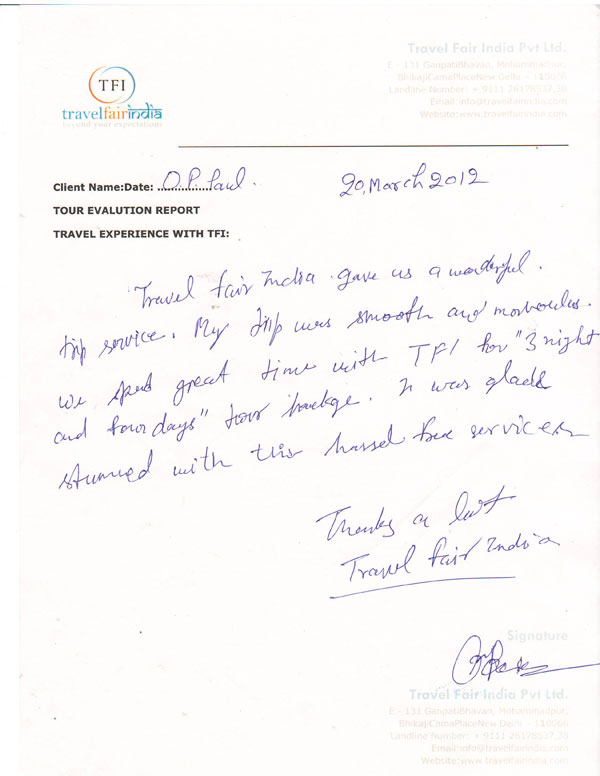 Travel Fair India Pvt Ltd.
E - 131 GanpatiBhavan, Mohammadpur,
BhikajiCamaPlaceNew Delhi - 110066
Landline Number: + 9111 26178537,38
Email:info@travelfairindia.com
Website:www.travelfairindia.com
TFI
travelfairindia
beyond your expectations
Client Name:Date: O.P. Paul. 20, March 2012
TOUR EVALUTION REPORT
TRAVEL EXPERIENCE WITH TFI:
Travel fair India gave us a wonderful.
trip service. My trip was smooth and morvoulus.
we spent great time with TFI for "3 night
and four days" tour packge. It was glade
stunned with this hassel free services
Thanks a lot
Travel fair India
Signature
Travel Fair India Pvt Ltd.
E - 131 GanpatiBhavan, Mohammadpur,
BhikajiCamaPlaceNew Delhi - 110066
Landline Number: + 9111 26178537,38
Email:info@travelfairindia.com
Website:www.travelfairindia.com